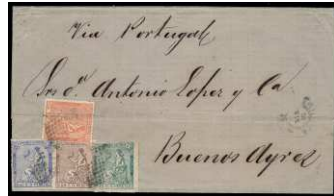 Via Portugal
Sres. Dn. Antonio Lopez y Ca.
Buenos Ayres